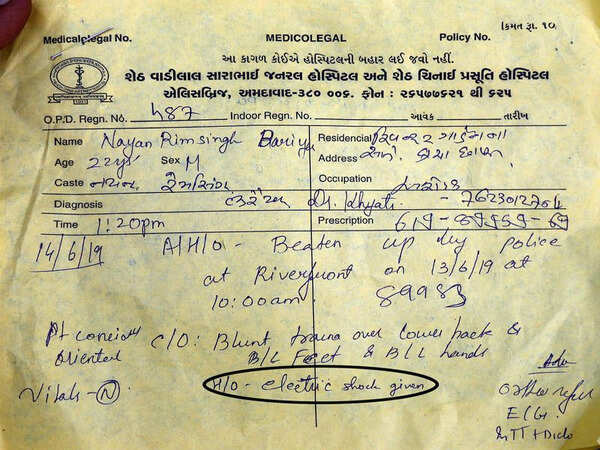 (કિંમત રૂા. ૧૦
Medicalegal No. MEDICOLEGAL Policy No.
આ કાગળ કોઈએ હોસ્પિટલની બહાર લઈ જવો નહીં.
શેઠ વાડીલાલ સારાભાઈ જનરલ હોસ્પિટલ અને શેઠ ચિનાઈ પ્રસૂતિ હોસ્પિટલ
એલિસબ્રિજ, અમદાવાદ-૩૮૦ ૦૦૬. ફોન : ૨૬૫૭૭૬૨૧ થી ૬૨૫
O.P.D. Regn. Nó. ૫૮૭ Indoor Regn. No. આવક તારીખ
Name Nayan Rimsingh Bariya Residencial
Age 22yr Sex M Address
Caste Occupation
Diagnosis Dr. Dhyati - 7623012704
Time 1:20pm Prescription
14/6/19 A/H/O - Beaten up by police
at Riverfront on 13/6/19 at
10:00am. 89983
Pt conscious C/O: Blunt trauma over lower back &
oriented B/L Feet & B/L hands
Vitals - N H/O - electric shock given
Adv
Ortho refer
ECG